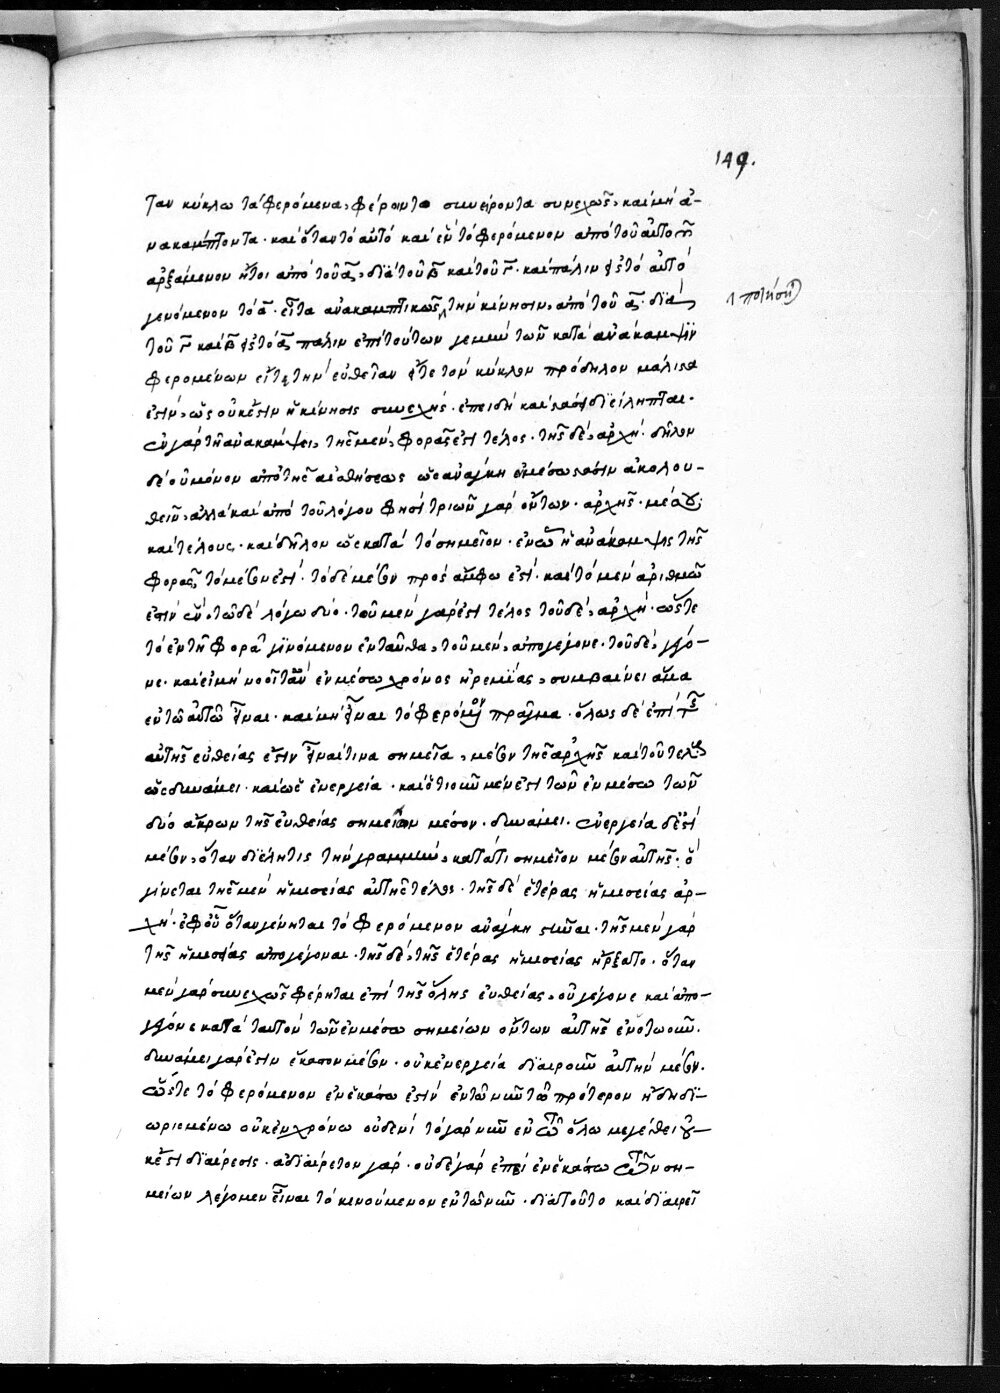 149.
ταν κύκλω τὰ φερόμενα, φέροιντο συνείροντα συνεχῶς, καὶ μὴ ἀ-
νακάμπτοντα· καὶ ὅταν τὸ αὐτὸ καὶ ἓν τὸ φερόμενον ἀπὸ τοῦ αὐτοῦ
ἀρξάμενον ἤτοι ἀπὸ τοῦ α, διὰ τοῦ β καὶ τοῦ γ· καὶ πάλιν ἐπὶ τὸ αὐτὸ
γενόμενον τὸ α· εἶτα ἀνακαμπτικῶς τὴν κίνησιν, ἀπὸ τοῦ α· διὰ
ποιήσηται
τοῦ γ καὶ β ἐπὶ τὸ α πάλιν ἐπὶ τούτων μὲν τῶν κατὰ ἀνάκαμψιν
φερομένων εἴτε τὴν εὐθεῖαν εἴτε τὸν κύκλον πρόδηλον μάλιστα
ἐστὶν, ὡς οὐκ ἔστιν ἡ κίνησις συνεχής· ἐπειδὴ καὶ στάσει διείληπται·
ἐν γὰρ τῇ ἀνακάμψει, τῆς μὲν, φορᾶς ἐστι τέλος· τῆς δὲ, ἀρχή· δῆλον
δὲ οὐ μόνον ἀπὸ τῆς αἰσθήσεως ὡς ἀνάγκη ἐν μέσω στάσιν ἀκολου-
θεῖν, ἀλλὰ καὶ ἀπὸ τοῦ λόγου φησὶ τριῶν γὰρ ὄντων· ἀρχῆς· μέσου·
καὶ τέλους· καὶ δῆλον ὡς κατὰ τὸ σημεῖον· ἐν ᾧ ἡ ἀνάκαμψις τῆς
φορᾶς, τὸ μέσον ἐστί· τὸ δὲ μέσον πρὸς ἄμφω ἐστί· καὶ τὸ μὲν ἀριθμῶ
ἐστὶν ἕν· τῶ δὲ λόγω δύο· τοῦ μὲν γάρ ἐστι τέλος τοῦ δὲ, ἀρχή· ὥστε
τὸ ἐν τῇ φορᾷ γινόμενον ἐνταῦθα, τοῦ μὲν, ἀπογέγονε· τοῦ δὲ, γέγο-
νε· καὶ εἰ μὴ νοοῖτο ἐν μέσω χρόνος ἠρεμίας, συμβαίνει ἅμα
ἐν τῶ αὐτῶ εἶναι· καὶ μὴ εἶναι τὸ φερόμενον πρᾶγμα· ὅλως δὲ ἐπὶ τῆς
αὐτῆς εὐθείας ἔστιν εἶναί τινα σημεῖα, μέσον τῆς ἀρχῆς καὶ τοῦ τέλους
ὡς δυνάμει· καὶ ὡς ἐνεργεία· καὶ ὁτιοῦν μέν ἐστι τῶν ἐν μέσω τῶν
δύο ἄκρων τῆς εὐθείας σημεῖον μέσον· δυνάμει· ἐνεργεία δέ ἐστι
μέσον, ὅταν διέλῃ τις τὴν γραμμὴν, κατά τι σημεῖον μέσον αὐτῆς· ὃ
γίνεται τῆς μὲν ἡμισείας αὐτῆς τέλος· τῆς δὲ ἑτέρας ἡμισείας ἀρ-
χή· ἐφ' οὗ ὅταν γένηται τὸ φερόμενον ἀνάγκη στῆναι· τῆς μὲν γὰρ
τῆς ἡμισείας ἀπογέγοναι· τῆς δὲ, τῆς ἑτέρας ἡμισείας ἤρξατο· ὅταν
μὲν γὰρ συνεχῶς φέρηται ἐπὶ τῆς ὅλης εὐθείας, οὐ γέγονε καὶ ἀπο-
γέγονε κατὰ ταυτὸν τῶν ἐν μέσω σημείων ὄντων αὐτῆς ἐν ὁτωοῦν·
δυνάμει γάρ ἐστιν ἕκαστον μέσον· οὐκ ἐνεργεία διαιροῦν αὐτὴν μέσον·
ὥστε τὸ φερόμενον ἐν ἑκάστω ἐστὶν ἐν τῶ νῦν τῶ πρότερον ἤδη δι-
ωρισμένω οὐκ ἐν χρόνω οὐδενὶ τὸ γὰρ νῦν ἐν τῶ ὅλω μεγέθει οὐ-
κ ἔστι διαίρεσις· ἀδιαίρετον γάρ· οὐδὲ γὰρ ἐπεὶ ἐν ἑκάστω τῶν ση-
μείων λέγομεν εἶναι τὸ κινούμενον ἐν τῶ νῦν· διὰ τοῦτο καὶ διαιρεῖ